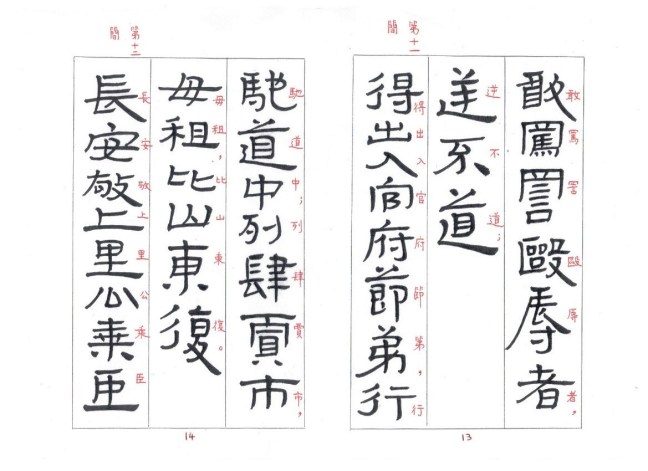 敢罵詈毆辱者
敢罵詈毆辱者,
逆不道
逆不道;
第十一簡
得出入官府節弟行
得出入官府節第,行
13
馳道中列肆賈市
馳道中;列肆賈市,
毋租比山東復
毋租,比山東復。
第十二簡
長安敬上里公乘臣
長安敬上里公乘臣
14